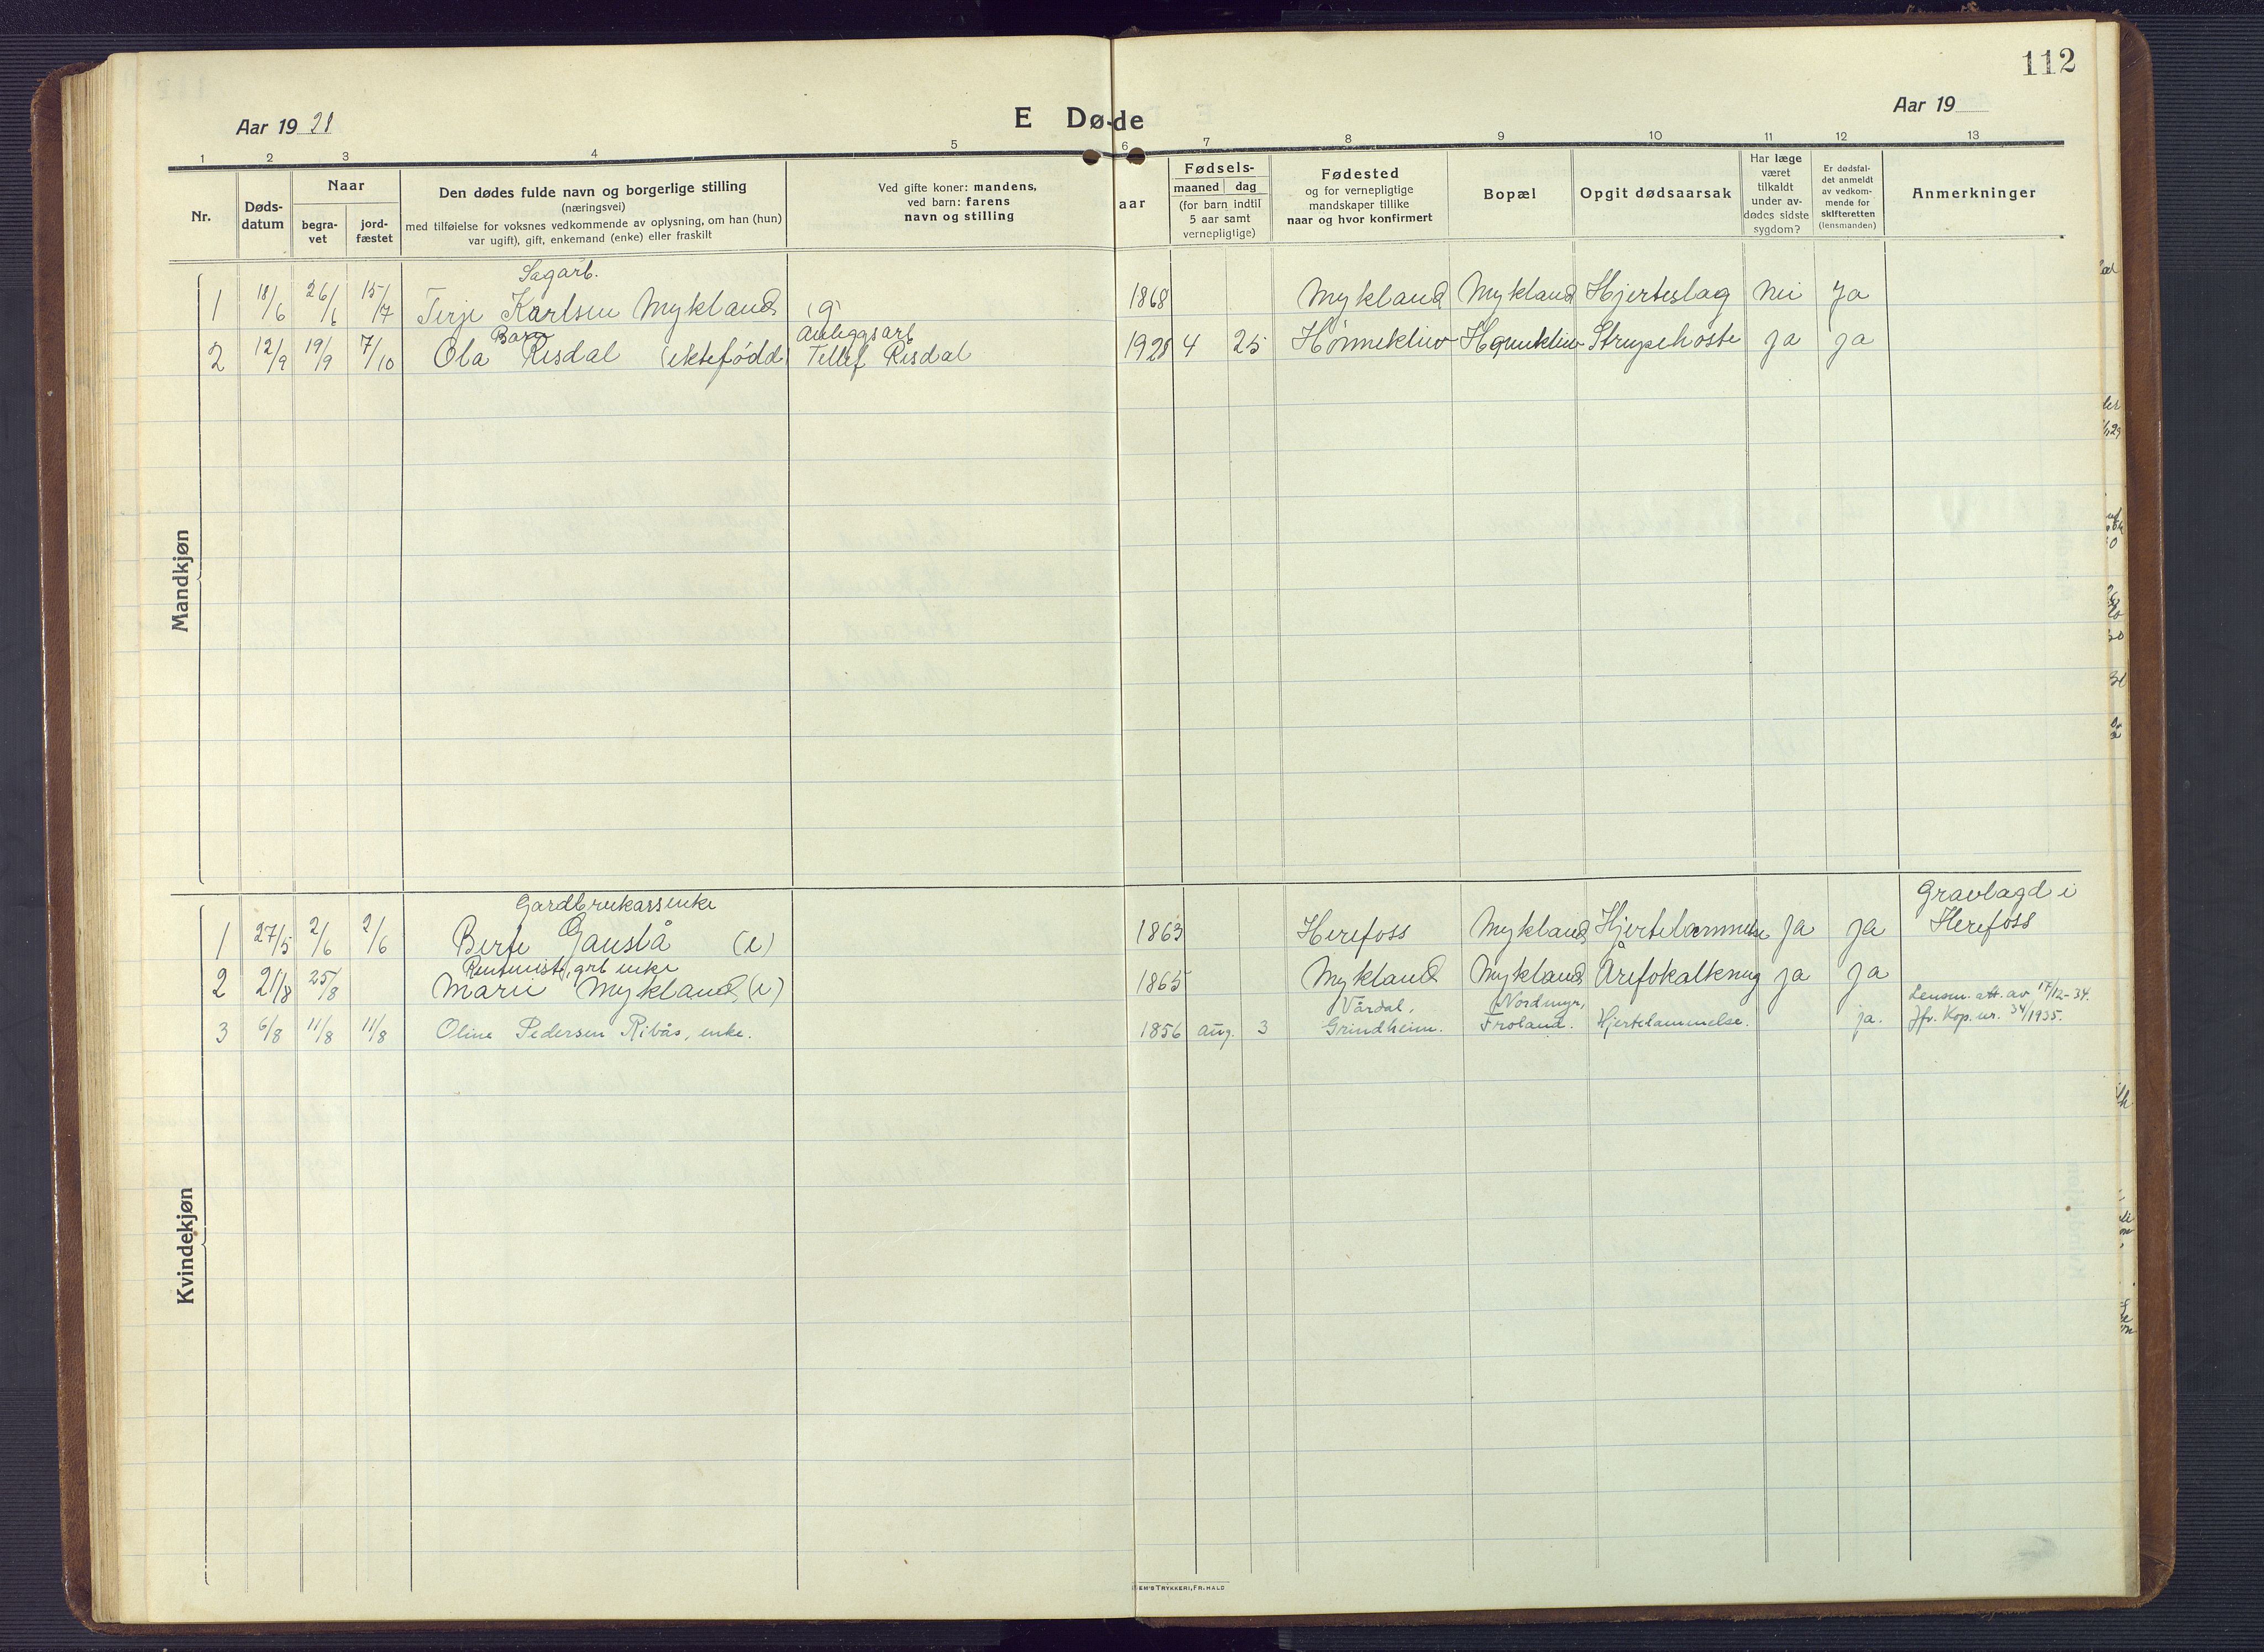 112
Aar 19 28
E Døde
Aar 19
1 2 3 4 5 6 7 8 9 10 11 12 13
Nr.
Døds-
datum
Naar
begra-
vet
jord-
fæstet
Den dødes fulde navn og borgerlige stilling
(næringsvei)
med tilføielse for voksnes vedkommende av oplysning, om han (hun)
var ugift), gift, enkemand (enke) eller fraskilt
Ved gifte koner: mandens,
ved barn: farens
navn og stilling
aar
Fødsels-
maaned dag
(for barn indtil
5 aar samt
vernepligtige)
Fødested
og for vernepligtige
mandskaper tillike
naar og hvor konfirmert
Bopæl
Opgit dødsaarsak
Har læge
været
tilkaldt
under av-
dødes sidste
sygdom?
Er dødsfal-
det anmeldt
av vedkom-
mende for
skifteretten
(lensmanden)
Anmerkninger
Mandkjøn
Sagarb.
1 18/6 26/6 15/7 Terje Karlsen Mykland (g) 1868 Mykland Mykland Hjerteslag Nei Ja
Barn Anleggsarb
2 12/9 19/9 7/10 Ola Risdal (ektefødd) Tellef Risdal 1928 4 25 Hønnekliv Hønnekliv Strupehoste ja ja
Kvindekjøn
Gardbrukarsenke Gravlagd i
1 27/5 2/6 2/6 Berte Gauslå (e) 1863 Herefoss Mykland Hjertelammelse Ja Ja Herefoss
enke
2 21/8 25/8 Marie Mykland (e) 1865 Mykland Mykland Årefokalkning ja Ja
Vårdal, Nordmyr, Lensm. att. av 17/12-34.
3 6/8 11/8 11/8 Oline Pedersen Ribås, enke. 1856 aug. 3 Grindheim. Froland. Hjertelammelse. ja. Jfr. Kop. nr. 34/1935.
EM'S TRYKKERI, FR. HALD